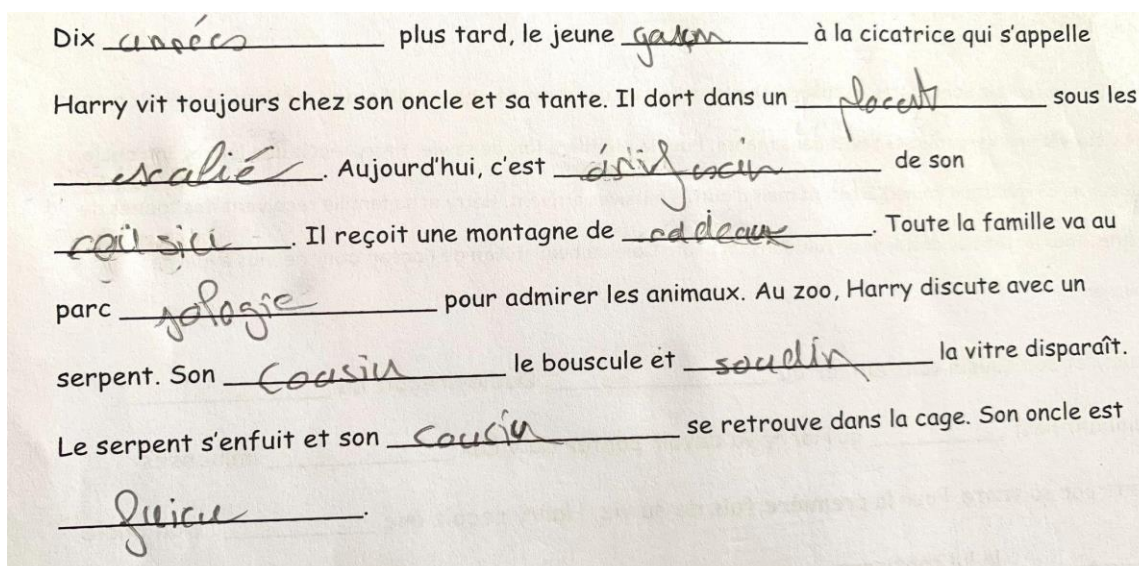 Dix années plus tard, le jeune gason à la cicatrice qui s'appelle
Harry vit toujours chez son oncle et sa tante. Il dort dans un placart sous les
escalié. Aujourd'hui, c'est de son
. Il reçoit une montagne de cadeaux. Toute la famille va au
parc zologie pour admirer les animaux. Au zoo, Harry discute avec un
serpent. Son cousin le bouscule et soudin la vitre disparaît.
Le serpent s'enfuit et son cousin se retrouve dans la cage. Son oncle est
.